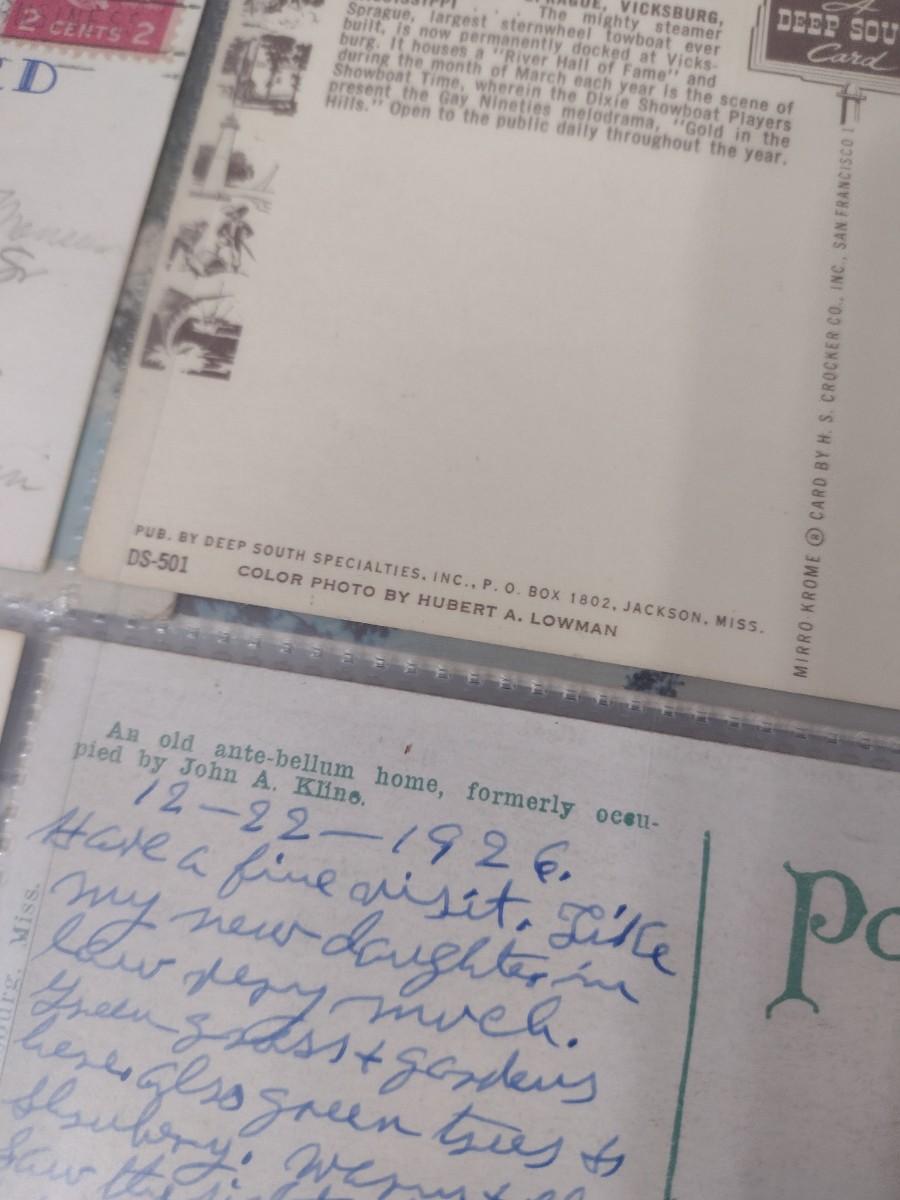 2 CENTS 2
RD
Sr
MISSISSIPPI . . . The mighty steamer
SPRAGUE, VICKSBURG,
Sprague, largest sternwheel towboat ever
built, is now permanently docked at Vicks-
burg. It houses a "River Hall of Fame" and
during the month of March each year is the scene of
Showboat Time, wherein the Dixie Showboat Players
present the Gay Nineties melodrama, "Gold in the
Hills." Open to the public daily throughout the year.
A
DEEP SOU
Card
MIRRO-KROME ® CARD BY H. S. CROCKER CO., INC., SAN FRANCISCO 1
PUB. BY DEEP SOUTH SPECIALTIES, INC., P. O. BOX 1802, JACKSON, MISS.
DS-501
COLOR PHOTO BY HUBERT A. LOWMAN
An old ante-bellum home, formerly occu-
pied by John A. Kline.
12-22-1926.
Have a fine visit. Like
my new daughter in
law very much.
Green grass & gardens
here, also green trees &
shrubery.
Saw the
burg, Miss.
Po